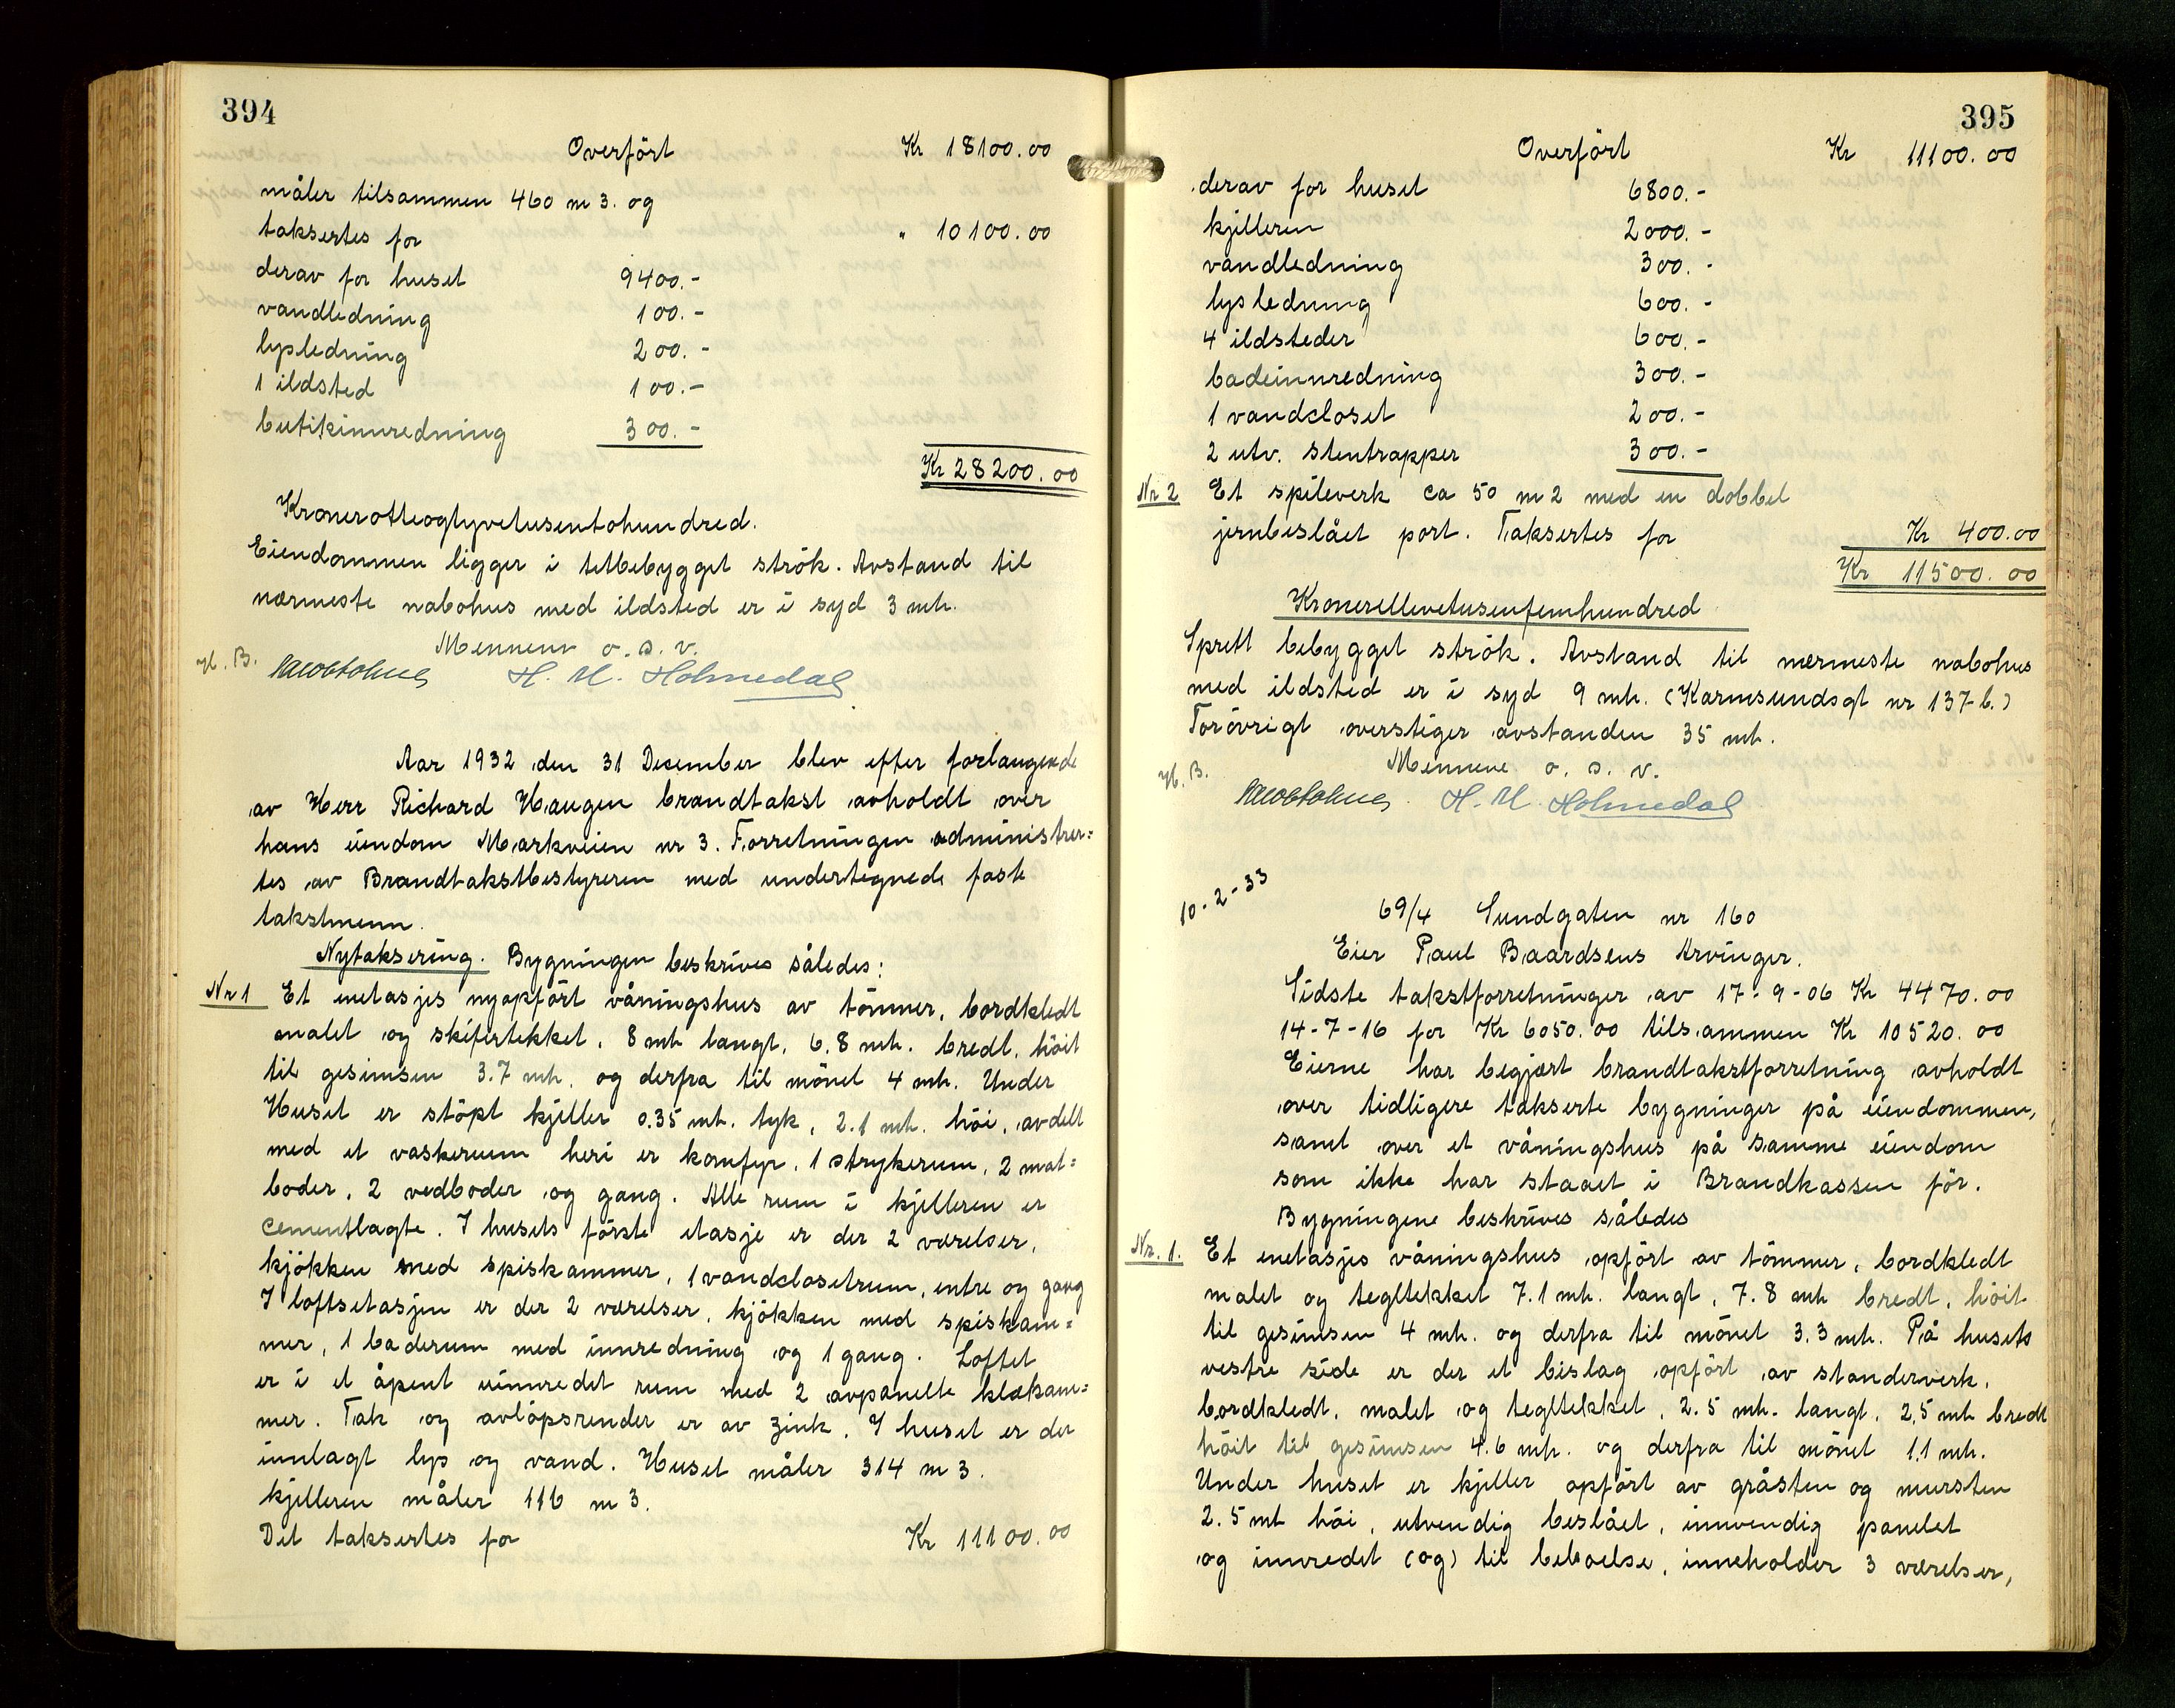 394
Overfört Kr 18100.00
måler tilsammen 460 m 3. og
taksertes for " 10100.00
derav for huset 9400.-
vandledning 100.-
lysledning 200.-
1 ildsted 100.-
butikinnredning 300.-
Kr 28200.00
Kronerotteogtyvetusentohundred.
Eiendommen ligger i tetbebygget strök. Avstand til
nærmeste nabohus med ildsted er i syd 3 mtr.
Mennene o. s. v.
H. B. H. M. Holmedal
Aar 1932 den 31 Desember blev efter forlangende
av Herr Richard Haugen brandtakst avholdt over
hans eiendom Markveien nr 3. Forretningen administrer=
tes av Brandtakstbestyreren med undertegnede faste
takstmenn.
Nytaksering. Bygningen beskrives således:
Nr 1 Et enetasjes nyopfört våningshus av tömmer, bordkledt
malet og skifertekket, 8 mtr langt, 6.8 mtr. bredt, höit
til gesimsen 3.7 mtr. og derfra til mönet 4 mtr. Under
Huset er stöpt kjeller 0.35 mtr. tyk, 2.1 mtr. höi, avdelt
med et vaskerum heri er komfyr, 1 strykerum, 2 mat=
boder, 2 vedboder og gang. Alle rum i kjelleren er
cementlagte. I husets förste etasje er der 2 værelser,
kjökken med spiskammer, 1 vandclosetrum, entre og gang
I loftsetasjen er der 2 værelser, kjökken med spiskam=
mer, 1 baderum med innredning og 1 gang. Loftet
er i et åpent uinnredet rum med 2 avpanelte klækam=
mer. Tak og avlöpsrender er av zink. I huset er der
innlagt lys og vand. Huset måler 314 m 3.
kjelleren måler 116 m 3.
Det taksertes for Kr 11100.00
395
Overfört Kr 11100.00
derav for huset 6800.-
kjelleren 2000.-
vandledning 300.-
lysledning 600.-
4 ildsteder 600.-
badeinnredning 300.-
1 vandcloset 200.-
2 utv. stentrapper 300.-
Nr 2 Et spileverk ca 50 m 2 med en dobbel
jernbeslået port. Taksertes for Kr 400.00
Kr 11500.00
Kronerellevetusenfemhundred
Sprett bebygget strök. Avstand til nærmeste nabohus
med ildsted er i syd 9 mtr. (Karmsundsgt nr 137 b.)
Forövrigt overstiger avstanden 35 mtr.
Mennene o. s. v.
H. B. H. M. Holmedal
10-2-33
69/4 Sundgaten nr 160
Eier Paul Baardsens Arvinger.
Sidste takstforretninger av 17-9-06 Kr 4470.00
14-7-16 for Kr 6050.00 tilsammen Kr 10520.00
Eierne har begjært brandtakstforretning avholdt
over tidligere takserte bygninger på eiendommen,
samt over et våningshus på samme eiendom
som ikke har staaet i Brandkassen för.
Bygningene beskrives således
Nr. 1. Et enetasjes våningshus opfört av tömmer, bordkledt
malet og tegltekket 7.1 mtr. langt, 7.8 mtr bredt, höit
til gesimsen 4 mtr. og derfra til mönet 3.3 mtr. På husets
vestre side er der et bislag opfört av standerverk,
bordkledt, malet og tegltekket, 2.5 mtr. langt, 2,5 mtr bredt
höit til gesimsen 4.6 mtr. og derfra til mönet 1.1 mtr.
Under huset er kjeller opfört av gråsten og mursten
2.5 mtr höi, utvendig beslået, innvendig panelet
og innredet (og) til beboelse, inneholder 3 værelser,